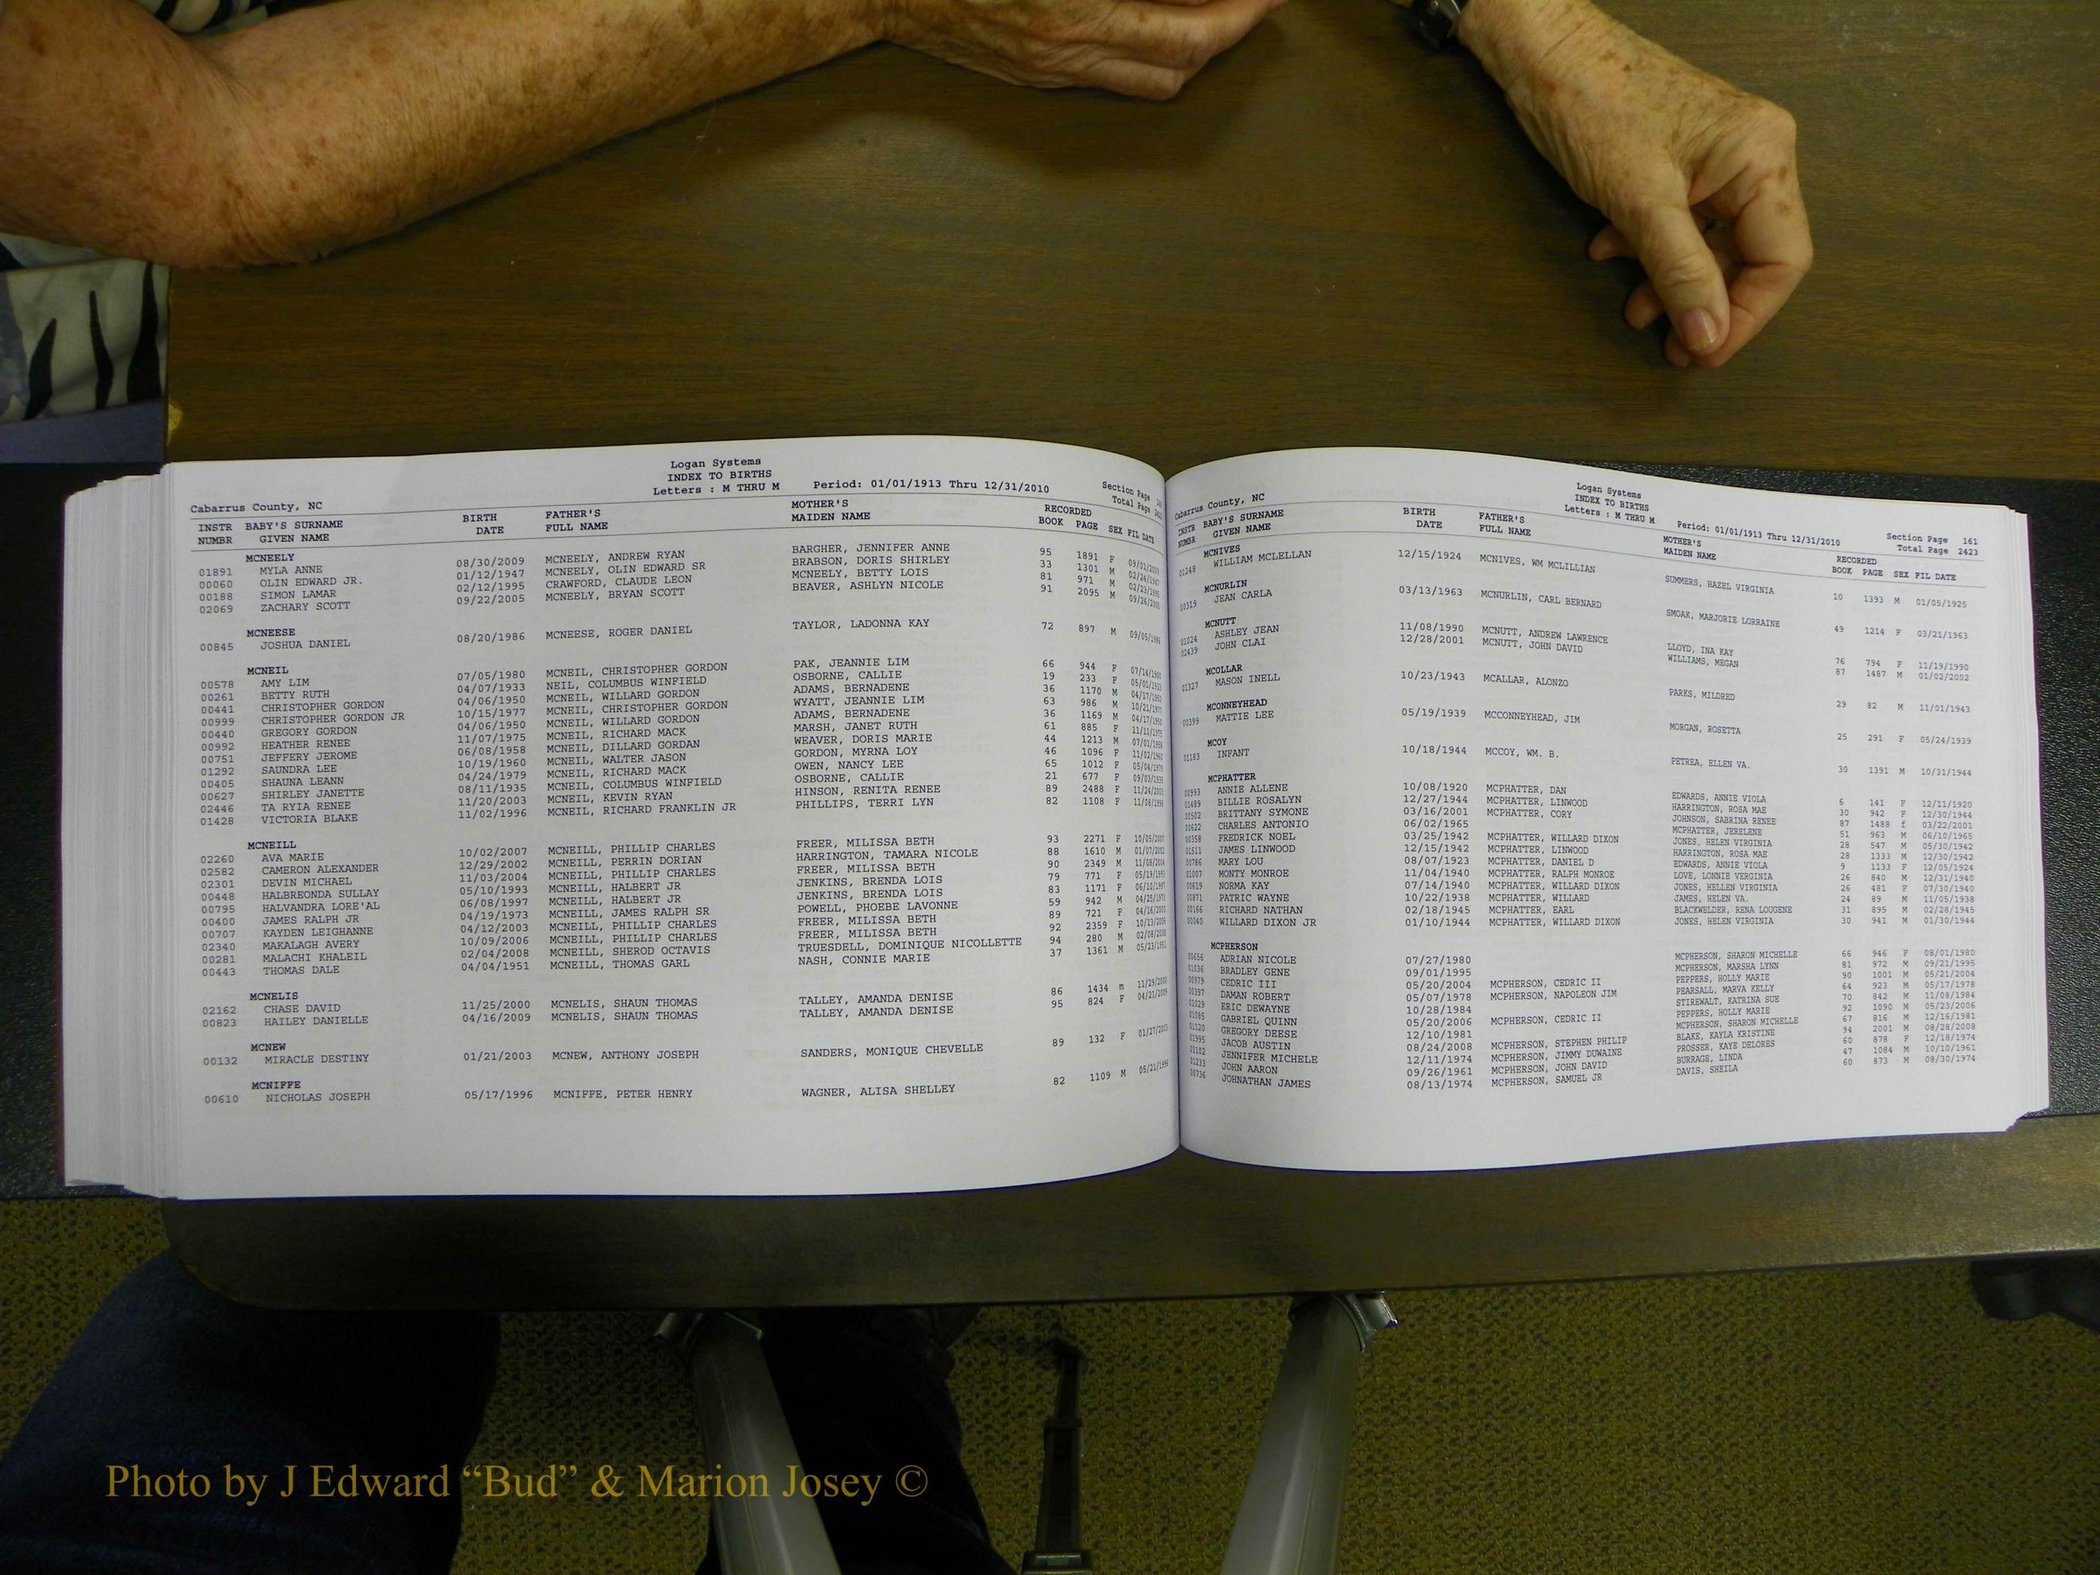 Logan Systems
INDEX TO BIRTHS
Letters : M THRU M Period: 01/01/1913 Thru 12/31/2010 Section Page
Cabarrus County, NC Total Page
INSTR BABY'S SURNAME BIRTH FATHER'S MOTHER'S RECORDED
NUMBR GIVEN NAME DATE FULL NAME MAIDEN NAME BOOK PAGE SEX FIL DATE
MCNEELY
01891 MYLA ANNE 08/30/2009 MCNEELY, ANDREW RYAN BARGHER, JENNIFER ANNE 95 1891 F 09/01/2009
00060 OLIN EDWARD JR. 01/12/1947 MCNEELY, OLIN EDWARD SR BRABSON, DORIS SHIRLEY 33 1301 M 02/24/1947
00188 SIMON LAMAR 02/12/1995 CRAWFORD, CLAUDE LEON MCNEELY, BETTY LOIS 81 971 M 02/23/1995
02069 ZACHARY SCOTT 09/22/2005 MCNEELY, BRYAN SCOTT BEAVER, ASHLYN NICOLE 91 2095 M 09/26/2005
MCNEESE
00845 JOSHUA DANIEL 08/20/1986 MCNEESE, ROGER DANIEL TAYLOR, LADONNA KAY 72 897 M 09/05/1986
MCNEIL
00578 AMY LIM 07/05/1980 MCNEIL, CHRISTOPHER GORDON PAK, JEANNIE LIM 66 944 F 07/14/1980
00261 BETTY RUTH 04/07/1933 NEIL, COLUMBUS WINFIELD OSBORNE, CALLIE 19 233 F 05/01/1933
00441 CHRISTOPHER GORDON 04/06/1950 MCNEIL, WILLARD GORDON ADAMS, BERNADENE 36 1170 M 04/17/1950
00999 CHRISTOPHER GORDON JR 10/15/1977 MCNEIL, CHRISTOPHER GORDON WYATT, JEANNIE LIM 63 986 M 10/21/1977
00440 GREGORY GORDON 04/06/1950 MCNEIL, WILLARD GORDON ADAMS, BERNADENE 36 1169 M 04/17/1950
00992 HEATHER RENEE 11/07/1975 MCNEIL, RICHARD MACK MARSH, JANET RUTH 61 885 F 11/11/1975
00751 JEFFERY JEROME 06/08/1958 MCNEIL, DILLARD GORDAN WEAVER, DORIS MARIE 44 1213 M 07/01/1958
01292 SAUNDRA LEE 10/19/1960 MCNEIL, WALTER JASON GORDON, MYRNA LOY 46 1096 F 11/02/1960
00405 SHAUNA LEANN 04/24/1979 MCNEIL, RICHARD MACK OWEN, NANCY LEE 65 1012 F 05/04/1979
00627 SHIRLEY JANETTE 08/11/1935 MCNEIL, COLUMBUS WINFIELD OSBORNE, CALLIE 21 677 F 09/03/1935
02446 TA RYIA RENEE 11/20/2003 MCNEIL, KEVIN RYAN HINSON, RENITA RENEE 89 2488 F 11/24/2003
01428 VICTORIA BLAKE 11/02/1996 MCNEIL, RICHARD FRANKLIN JR PHILLIPS, TERRI LYN 82 1108 F 11/08/1996
MCNEILL
02260 AVA MARIE 10/02/2007 MCNEILL, PHILLIP CHARLES FREER, MILISSA BETH 93 2271 F 10/05/2007
02582 CAMERON ALEXANDER 12/29/2002 MCNEILL, PERRIN DORIAN HARRINGTON, TAMARA NICOLE 88 1610 M 01/07/2002
02301 DEVIN MICHAEL 11/03/2004 MCNEILL, PHILLIP CHARLES FREER, MILISSA BETH 90 2349 M 11/08/2004
00448 HALBREONDA SULLAY 05/10/1993 MCNEILL, HALBERT JR JENKINS, BRENDA LOIS 79 771 F 05/19/1993
00795 HALVANDRA LORE'AL 06/08/1997 MCNEILL, HALBERT JR JENKINS, BRENDA LOIS 83 1171 F 06/10/1997
00400 JAMES RALPH JR 04/19/1973 MCNEILL, JAMES RALPH SR POWELL, PHOEBE LAVONNE 59 942 M 04/25/1973
00707 KAYDEN LEIGHANNE 04/12/2003 MCNEILL, PHILLIP CHARLES FREER, MILISSA BETH 89 721 F 04/16/2003
02340 MAKALAGH AVERY 10/09/2006 MCNEILL, PHILLIP CHARLES FREER, MILISSA BETH 92 2359 F 10/13/2006
00281 MALACHI KHALEIL 02/04/2008 MCNEILL, SHEROD OCTAVIS TRUESDELL, DOMINIQUE NICOLLETTE 94 280 M 02/08/2008
00443 THOMAS DALE 04/04/1951 MCNEILL, THOMAS GARL NASH, CONNIE MARIE 37 1361 M 05/23/1951
MCNELIS
02162 CHASE DAVID 11/25/2000 MCNELIS, SHAUN THOMAS TALLEY, AMANDA DENISE 86 1434 m 11/29/2000
00823 HAILEY DANIELLE 04/16/2009 MCNELIS, SHAUN THOMAS TALLEY, AMANDA DENISE 95 824 F 04/21/2009
MCNEW
00132 MIRACLE DESTINY 01/21/2003 MCNEW, ANTHONY JOSEPH SANDERS, MONIQUE CHEVELLE 89 132 F 01/27/2003
MCNIFFE
00610 NICHOLAS JOSEPH 05/17/1996 MCNIFFE, PETER HENRY WAGNER, ALISA SHELLEY 82 1109 M 05/21/1996
Logan Systems
INDEX TO BIRTHS
Letters : M THRU M Period: 01/01/1913 Thru 12/31/2010 Section Page 161
Cabarrus County, NC Total Page 2423
INSTR BABY'S SURNAME BIRTH FATHER'S MOTHER'S RECORDED
NUMBR GIVEN NAME DATE FULL NAME MAIDEN NAME BOOK PAGE SEX FIL DATE
MCNIVES
01248 WILLIAM MCLELLAN 12/15/1924 MCNIVES, WM MCLILLIAN SUMMERS, HAZEL VIRGINIA 10 1393 M 01/05/1925
MCNURLIN
00319 JEAN CARLA 03/13/1963 MCNURLIN, CARL BERNARD SMOAK, MARJORIE LORRAINE 49 1214 F 03/21/1963
MCNUTT
01024 ASHLEY JEAN 11/08/1990 MCNUTT, ANDREW LAWRENCE LLOYD, INA KAY 76 794 F 11/19/1990
02439 JOHN CLAI 12/28/2001 MCNUTT, JOHN DAVID WILLIAMS, MEGAN 87 1487 M 01/02/2002
MCOLLAR
01327 MASON INELL 10/23/1943 MCALLAR, ALONZO PARKS, MILDRED 29 82 M 11/01/1943
MCONNEYHEAD
00399 MATTIE LEE 05/19/1939 MCCONNEYHEAD, JIM MORGAN, ROSETTA 25 291 F 05/24/1939
MCOY
01183 INFANT 10/18/1944 MCCOY, WM. B. PETREA, ELLEN VA. 30 1391 M 10/31/1944
MCPHATTER
00993 ANNIE ALLENE 10/08/1920 MCPHATTER, DAN EDWARDS, ANNIE VIOLA 6 141 F 12/11/1920
01489 BILLIE ROSALYN 12/27/1944 MCPHATTER, LINWOOD HARRINGTON, ROSA MAE 30 942 F 12/30/1944
00502 BRITTANY SYMONE 03/16/2001 MCPHATTER, CORY JOHNSON, SABRINA RENEE 87 1488 f 03/22/2001
00622 CHARLES ANTONIO 06/02/1965 MCPHATTER, JERELENE 51 963 M 06/10/1965
00358 FREDRICK NOEL 03/25/1942 MCPHATTER, WILLARD DIXON JONES, HELEN VIRGINIA 28 547 M 05/30/1942
01511 JAMES LINWOOD 12/15/1942 MCPHATTER, LINWOOD HARRINGTON, ROSA MAE 28 1333 M 12/30/1942
00786 MARY LOU 08/07/1923 MCPHATTER, DANIEL D EDWARDS, ANNIE VIOLA 9 1133 F 12/05/1924
01007 MONTY MONROE 11/04/1940 MCPHATTER, RALPH MONROE LOVE, LONNIE VERGINIA 26 840 M 12/31/1940
00619 NORMA KAY 07/14/1940 MCPHATTER, WILLARD DIXON JONES, HELLEN VIRGINIA 26 481 F 07/30/1940
00871 PATRIC WAYNE 10/22/1938 MCPHATTER, WILLARD JAMES, HELEN VA. 24 89 M 11/05/1938
00166 RICHARD NATHAN 02/18/1945 MCPHATTER, EARL BLACKWELDER, RENA LOUGENE 31 895 M 02/28/1945
00040 WILLARD DIXON JR 01/10/1944 MCPHATTER, WILLARD DIXON JONES, HELEN VIRGINIA 30 941 M 01/30/1944
MCPHERSON
00656 ADRIAN NICOLE 07/27/1980 MCPHERSON, SHARON MICHELLE 66 946 F 08/01/1980
01036 BRADLEY GENE 09/01/1995 MCPHERSON, MARSHA LYNN 81 972 M 09/21/1995
00979 CEDRIC III 05/20/2004 MCPHERSON, CEDRIC II PEPPERS, HOLLY MARIE 90 1001 M 05/21/2004
00397 DAMAN ROBERT 05/07/1978 MCPHERSON, NAPOLEON JIM PEARSALL, MARVA KELLY 64 923 M 05/17/1978
01029 ERIC DEWAYNE 10/28/1984 STIREWALT, KATRINA SUE 70 842 M 11/08/1984
01085 GABRIEL QUINN 05/20/2006 MCPHERSON, CEDRIC II PEPPERS, HOLLY MARIE 92 1090 M 05/23/2006
01120 GREGORY DEESE 12/10/1981 MCPHERSON, SHARON MICHELLE 67 816 M 12/16/1981
01995 JACOB AUSTIN 08/24/2008 MCPHERSON, STEPHEN PHILIP BLAKE, KAYLA KRISTINE 94 2001 M 08/28/2008
01102 JENNIFER MICHELE 12/11/1974 MCPHERSON, JIMMY DUWAINE PROSSER, KAYE DELORES 60 878 F 12/18/1974
01233 JOHN AARON 09/26/1961 MCPHERSON, JOHN DAVID BURRAGE, LINDA 47 1084 M 10/10/1961
00736 JOHNATHAN JAMES 08/13/1974 MCPHERSON, SAMUEL JR DAVIS, SHEILA 60 873 M 08/30/1974
Photo by J Edward “Bud” & Marion Josey ©